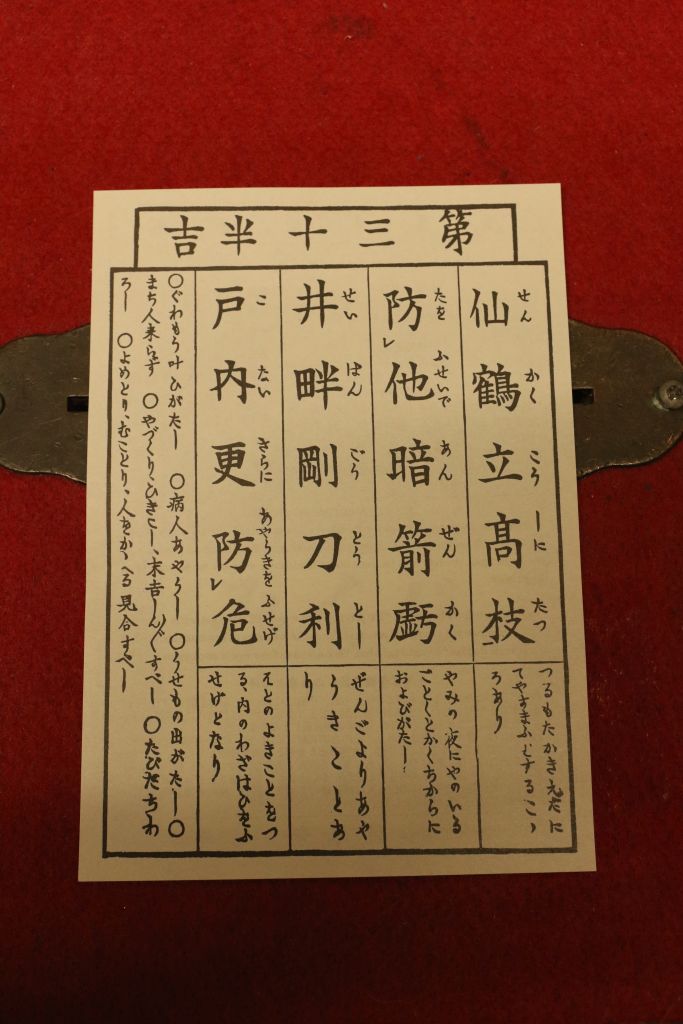 第三十半吉
仙鶴立高枝
せんかくこうしにたつ
つるもたかきえだに
てやすまふとするこゝ
ろあり
防レ他暗箭虧
たをふせいであんぜんかく
やみの夜にやのいる
ごとくとかくちからに
およびがたし
井畔剛刀利
せいはんごうとうとし
ぜんごよりあや
うきことあ
り
戸内更防レ危
こないさらにあやうきをふせげ
そとのよきことをつ
る、内のわざはひをふ
せげとなり
〇ぐわもう叶ひがたし 〇病人あやうし 〇うせもの出がたし〇
まち人来らず 〇やづくり、ひきこし、末吉しんぐすべし 〇たびだちわ
ろし 〇よめとり、むことり、人をかゝへる見合すべし